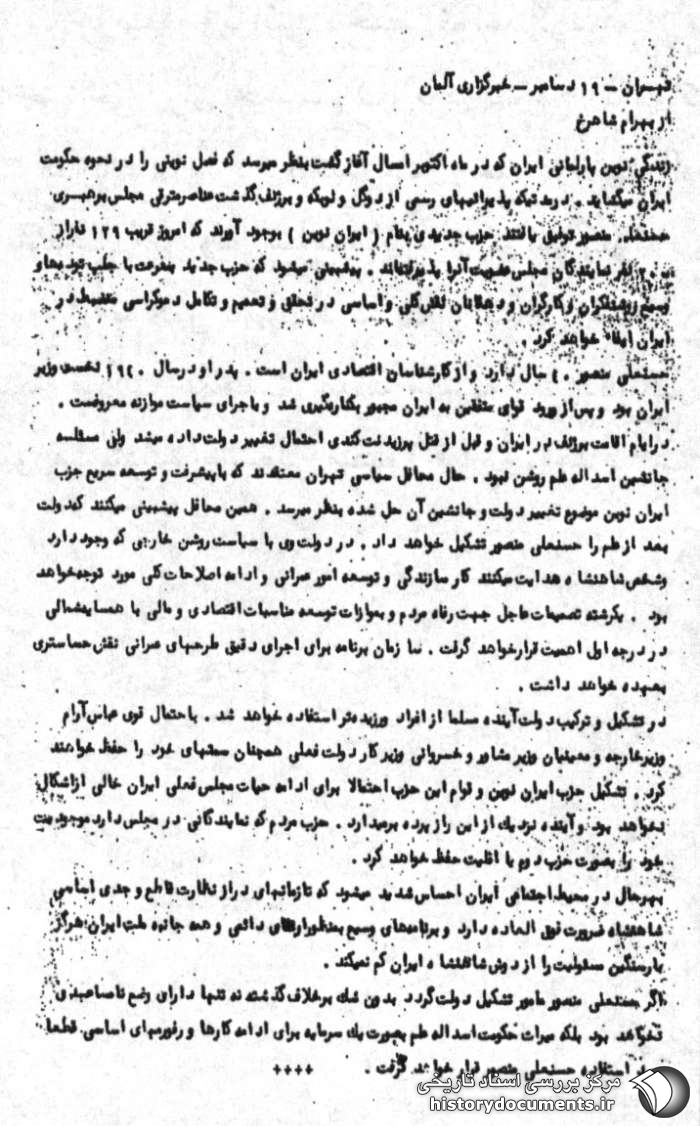 تهران – ۱۹ دسامبر – خبرگزاری آلمان
از بهرام شاهرخ
زندگی نوین پارلمانی ایران که در ماه اکتبر امسال آغاز گشت بنظر میرسد که فصل نوینی را در نحوه حکومت
ایران میگشاید . در مدتیکه پذیرائیهای رسمی از دوگل و لوبکه و برژنف گذشت عناصر مترقی مجلس برهبری
حسنعلی منصور توفیق یافتند حزب جدیدی بنام ( ایران نوین ) بوجود آورند که امروز قریب ۱۲۹ نفر از
۲۰۰ نفر نمایندگان مجلس عضویت آنرا پذیرفته‌اند . پیشبینی میشود که حزب جدید بسرعت با جلب توده‌های
وسیع روشنفکران و کارگران و دهقانان نقش کلی و اساسی در تحقق و تعمیم و تکامل دموکراسی منضبط در
ایران ایفاء خواهد کرد .
حسنعلی منصور ۴۰ سال دارد و از کارشناسان اقتصادی ایران است . پدر او در سال ۱۹۴۰ نخست وزیر
ایران بود و پس از ورود قوای متفقین به ایران مجبور بکناره‌گیری شد و باجرای سیاست موازنه معروفست .
در ایام اقامت برژنف در ایران و قبل از قتل پرزیدنت کندی احتمال تغییر دولت داده میشد ولی مسئله
جانشین اسداله علم روشن نبود . حال محافل سیاسی تهران معتقدند که با پیشرفت و توسعه سریع حزب
ایران نوین موضوع تغییر دولت و جانشین آن حل شده بنظر میرسد . همین محافل پیشبینی میکنند که دولت
بعد از علم را حسنعلی منصور تشکیل خواهد داد . در دولت وی با سیاست روشن خارجی که وجود دارد
وشخص شاهنشاه هدایت میکنند کار سازندگی و توسعه امور عمرانی و ادامه اصلاحات کلی مورد توجه خواهد
بود . یکرشته تصمیمات عاجل جهت رفاه مردم و بموازات توسعه مناسبات اقتصادی و مالی با همسایه شمالی
در درجه اول اهمیت قرار خواهد گرفت . سازمان برنامه برای اجرای دقیق طرحهای عمرانی نقش حساستری
بعهده خواهد داشت .
در تشکیل و ترکیب دولت آینده مسلما از افراد ورزیده‌تر استفاده خواهد شد . باحتمال قوی عباس آرام
وزیر خارجه و معینیان وزیر مشاور و خسروانی وزیر کار دولت فعلی همچنان سمتهای خود را حفظ خواهند
کرد . تشکیل حزب ایران نوین و قوام این حزب احتمالا برای ادامه حیات مجلس فعلی ایران خالی ازاشکال
نخواهد بود و آینده نزدیك از این راز پرده برمیدارد . حزب مردم که نمایندگانی در مجلس دارد موجودیت
خود را بصورت حزب دوم یا اقلیت حفظ خواهد کرد .
بهرحال در محیط اجتماعی ایران احساس شدید میشود که تا زمانهای دراز نظارت قاطع و جدی اساسی
شاهنشاه ضرورت فوق العاده دارد و برنامه‌های وسیع بمنظور ارتقای دائمی و همه جانبه ملت ایران هرگز
بار سنگین مسئولیت را از دوش شاهنشاه ایران کم نمیکند .
اگر حسنعلی منصور مامور تشکیل دولت گردد بدون شك برخلاف گذشته نه تنها دارای وضع نامساعدی
نخواهد بود بلکه میراث حکومت اسداله علم بصورت یك سرمایه برای ادامه کارها و رفورمهای اساسی قطعا
استفاده حسنعلی منصور قرار خواهد گرفت . ++++
مرکز بررسی اسناد تاریخی
historydocuments.ir